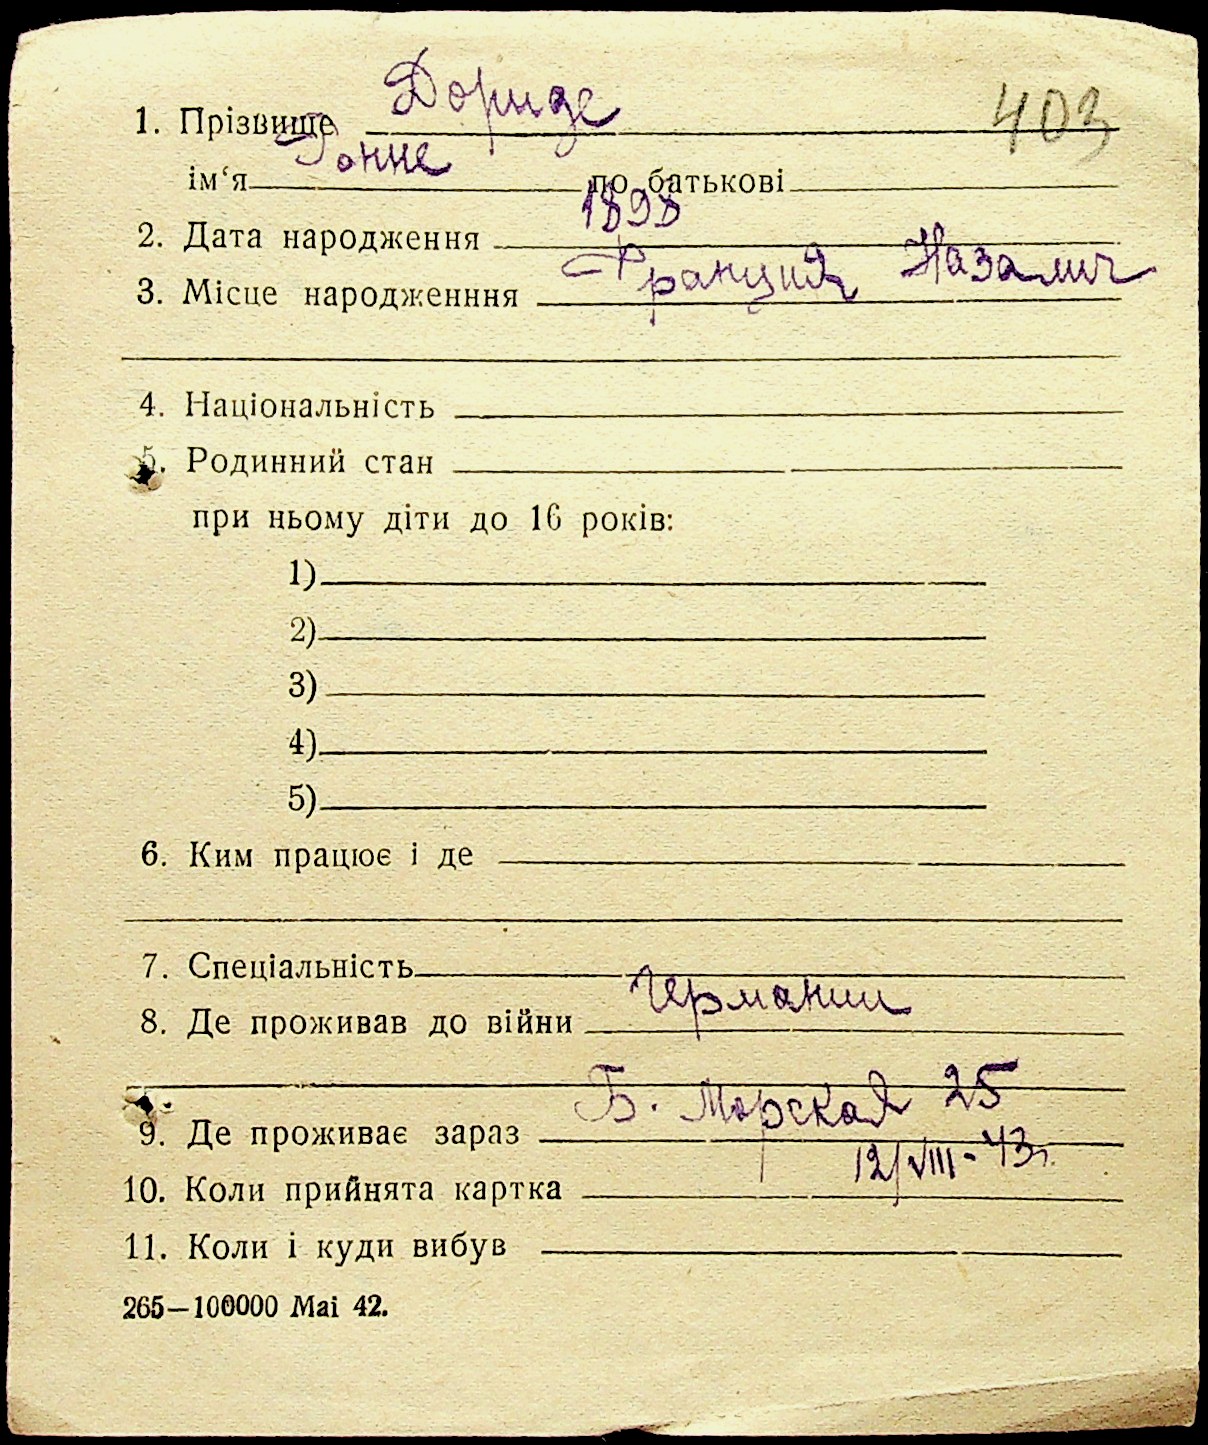 1. Прізвище Дориде 403
ім‘я Гонне по батькові
2. Дата народження 1898
3. Місце народженння Франция Назамич
4. Національність
5. Родинний стан
при ньому діти до 16 років:
1)
2)
3)
4)
5)
6. Ким працює і де
7. Спеціальність
8. Де проживав до війни Германии
9. Де проживає зараз Б. Морская 25
10. Коли прийнята картка 12/VIII-43г.
11. Коли і куди вибув
265—100000 Mai 42.